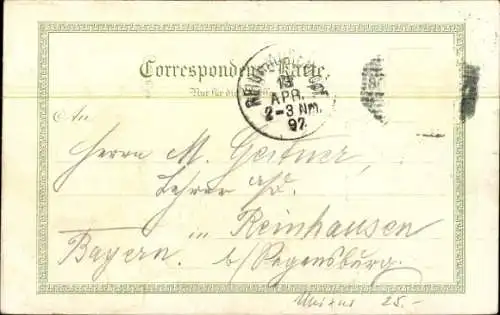 Correspondenz-Karte
Nur für die
13
APR.
2-3 NM.
97
An
Herrn M. Geitner,
Lehrer a/D.
in Reinhausen
Bayern. b/Regensburg.
25.-